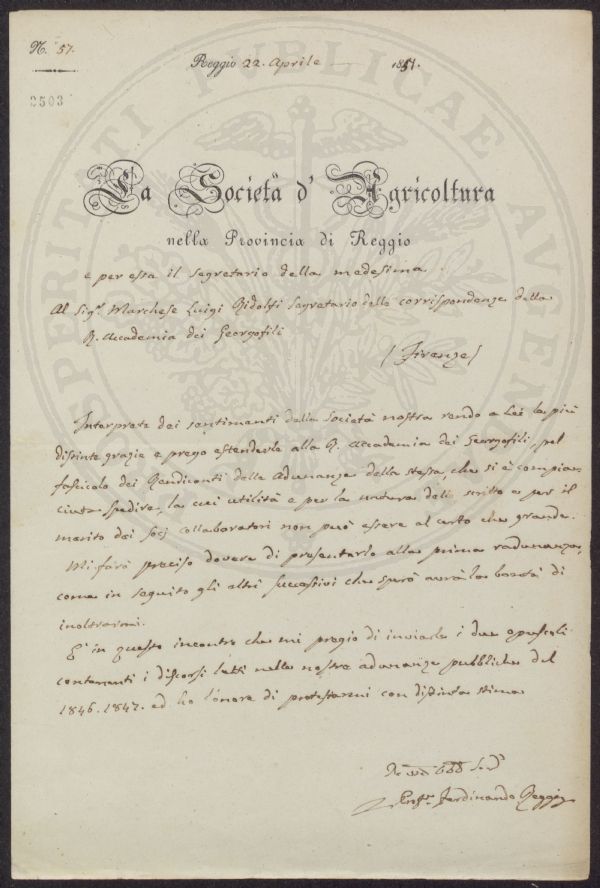 N. 57.
Reggio 22. Aprile 1851.
2503
PROSPERITATI PUBLICAE AUGENDAE
La Società d' Agricoltura
nella Provincia di Reggio
e per essa il Segretario della medesima
Al Sig.r Marchese Luigi Ridolfi Segretario delle corrispondenze della
R. Accademia dei Georgofili
(Firenze)
Interprete dei sentimenti della Società nostra rendo a Lei le più
distinte grazie e prego estenderle alla R. Accademia dei Georgofili, pel
fascicolo dei Rendiconti delle Adunanze della stessa, che si è compia-
ciuta spedire, la cui utilità e per la natura dell. scritto e per il
merito dei Socj collaboratori non può essere al certo che grande.
Mi farò preciso dovere di presentarlo alla prima radunanza,
come in seguito gli altri successivi che spero avrà la bontà di
inoltrarmi.
E' in questo incontro che mi pregio di inviarle i due opuscoli
contenenti i discorsi letti nelle nostre adunanze pubbliche del
1846. 1847. ed ho l'onore di protestarmi con distinta stima
Ferdinando